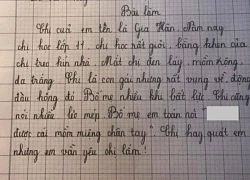 Bài làm
Chị của em tên là Gia Hân. Năm nay
chị học lớp 11. chị học rất giỏi, bằng khen của
chị treo kín nhà. Mặt chị đen lay, mồm rộng,
da trắng Chị là con gái nhưng rất vụng về, động
đâu hỏng đó Bố mẹ nhiều khi bất lực Chị cũng
nói nhiều lèo mép. Bố mẹ em toàn nói
được cái mồm miệng chân tay". Chị hay quát em
nhưng em vẫn yêu chị lắm!